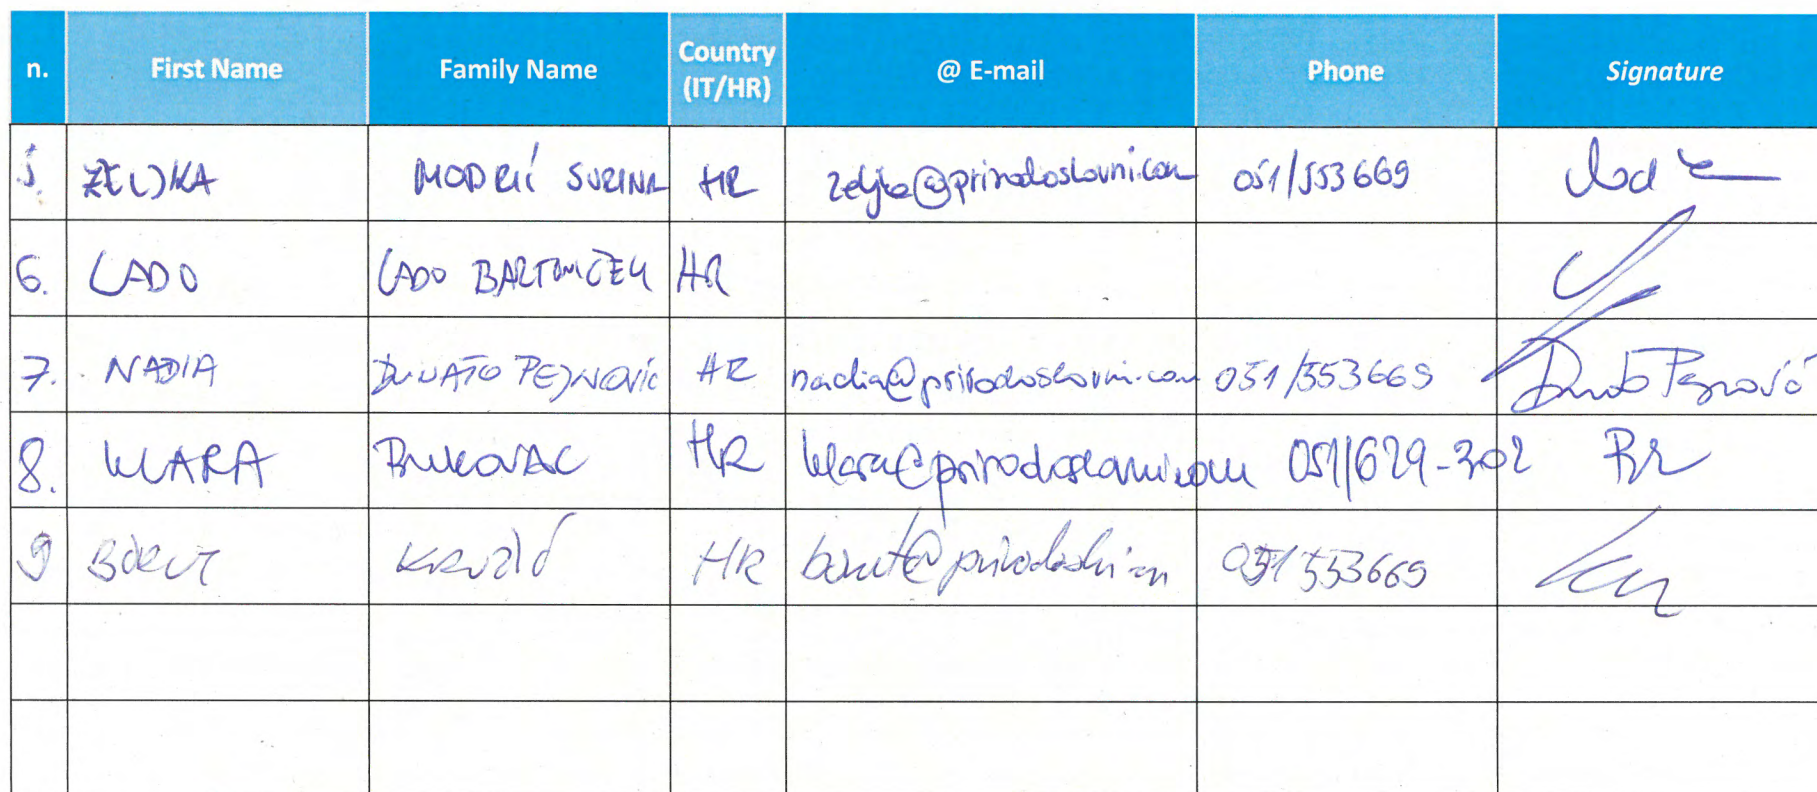 n. First Name Family Name Country (IT/HR) @ E-mail Phone Signature
5. ŽELJKA MODRIĆ SURINA HR zeljka@prirodoslovni.com 051/553669
6. LADO LADO BARTONIČEK HR
7. NADIA DUNATO PEJNOVIĆ HR nadia@prirodoslovni.com 051/553669 Dunato Pejnović
8. KLARA BUKOVAC HR klara@prirodoslovni.com 051/629-302
9 BORUT KRUŽIĆ HR 051553669